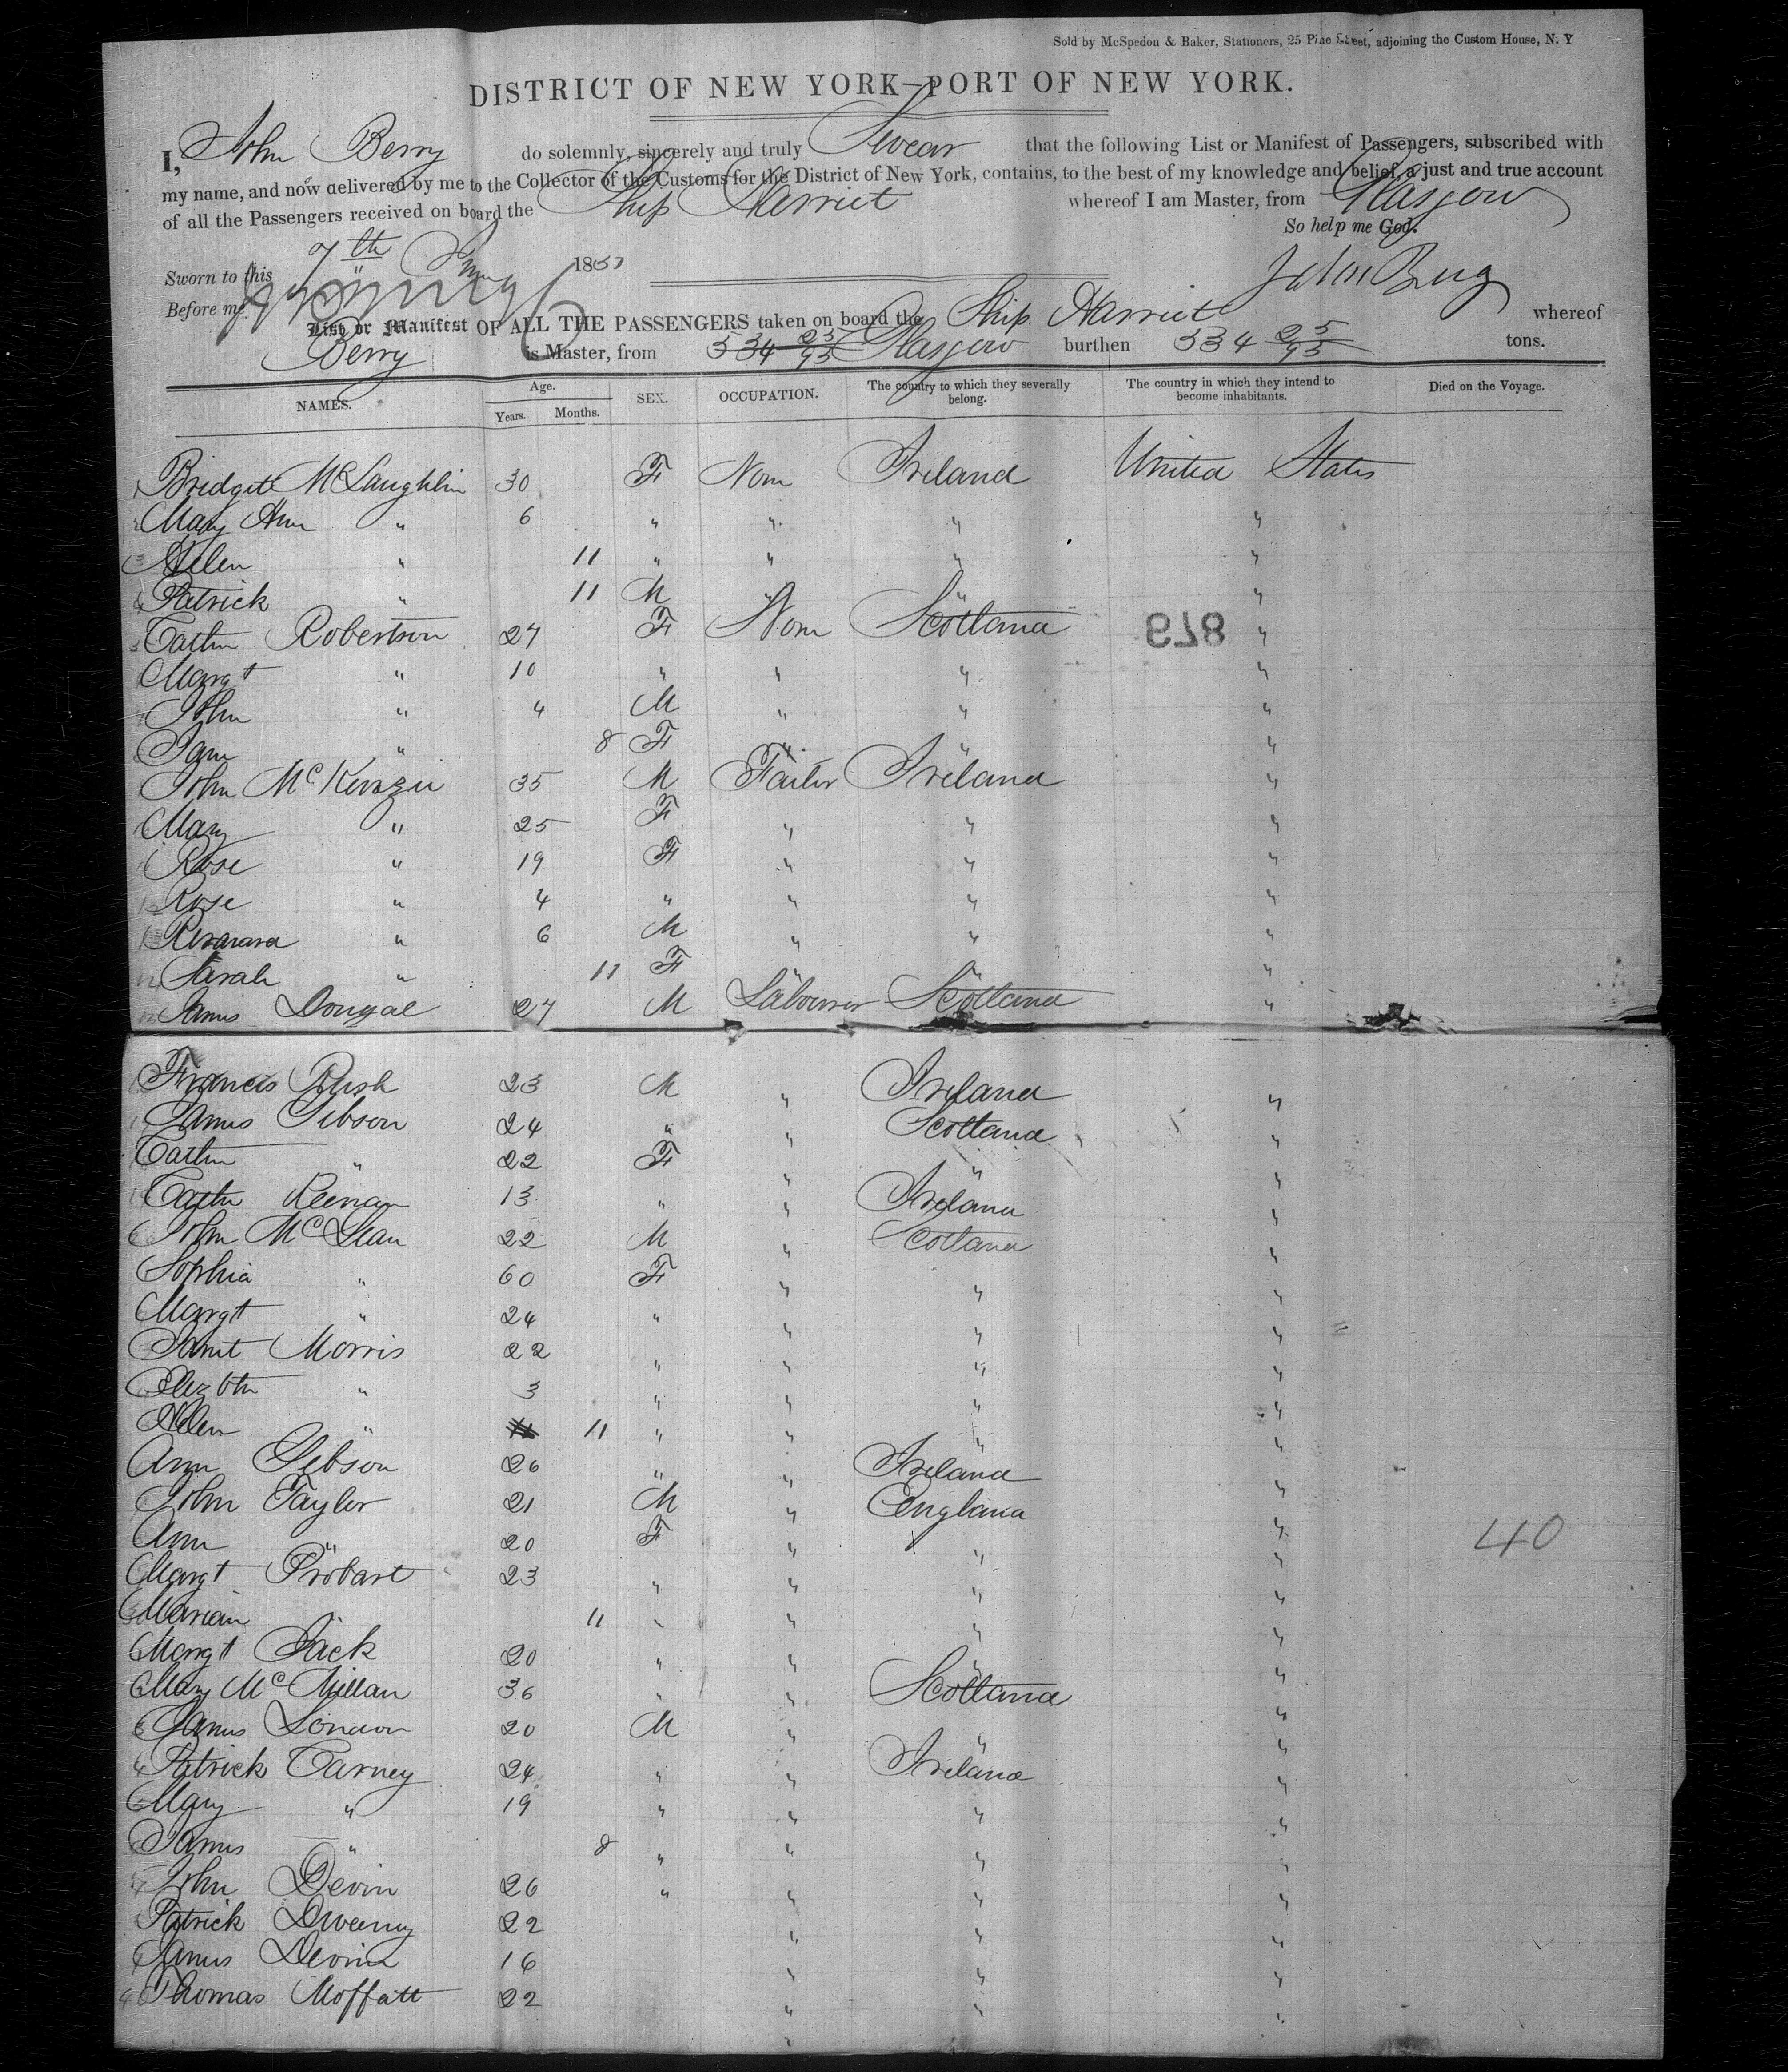 Sold by McSpedon & Baker, Stationers, 25 Pine Street, adjoining the Custom House, N. Y
DISTRICT OF NEW YORK—PORT OF NEW YORK.
I, John Berry do solemnly, sincerely and truly Swear that the following List or Manifest of Passengers, subscribed with
my name, and now delivered by me to the Collector of the Customs for the District of New York, contains, to the best of my knowledge and belief, a just and true account
of all the Passengers received on board the Ship Harriet whereof I am Master, from Glasgow
So help me God.
Sworn to this 7th 185
Before me
John Berry
List or Manifest OF ALL THE PASSENGERS taken on board the Ship Harriet whereof
Berry is Master, from 534 25/95 Glasgow burthen 534 25/95 tons.
NAMES. Age. Years. Months. SEX. OCCUPATION. The country to which they severally belong. The country in which they intend to become inhabitants. Died on the Voyage.
1 Bridgett McLaughlin 30 F Non Ireland United States
2 Mary Ann " 6 " " " "
3 Helen " 11 " " " "
4 Patrick " 11 M " " "
5 Cathn Robertson 27 F Non Scotland "
879
Margt " 10 " " " "
John " 4 M " " "
Jane " 8 F " " "
John McKenzie 35 M Tailor Ireland "
Mary " 25 F " " "
Rose " 19 F " " "
12 Rose " 4 " " " "
13 " 6 M " " "
14 Sarah " 11 F " " "
James Dougal 27 M Labourer Scotland "
Francis Rush 23 M " Ireland "
James Gibson 24 " " Scotland "
Cathn " 22 F " " "
Cathn Keenan 13 " " Ireland "
John McLean 22 M " Scotland "
Sophia " 60 F " " "
Margt " 24 " " " "
Janet Morris 22 " " " "
Elizbth " 3 " " " "
Helen " 11 " " " "
Ann Gibson 26 " " Ireland "
John Taylor 21 M " England "
Ann " 20 F " " "
Margt Probart 23 " " " "
Marian 11 " " " "
Margt Jack 20 " " " "
Mary McMillan 36 " " Scotland "
James London 20 M " " "
Patrick Carney 24 " " Ireland "
Mary " 19 " " " "
James " 8 " " " "
John Devin 26 " " " "
Patrick Sweeny 22 " " "
James Devin 16 " " "
40 Thomas Moffatt 22 " " "
40